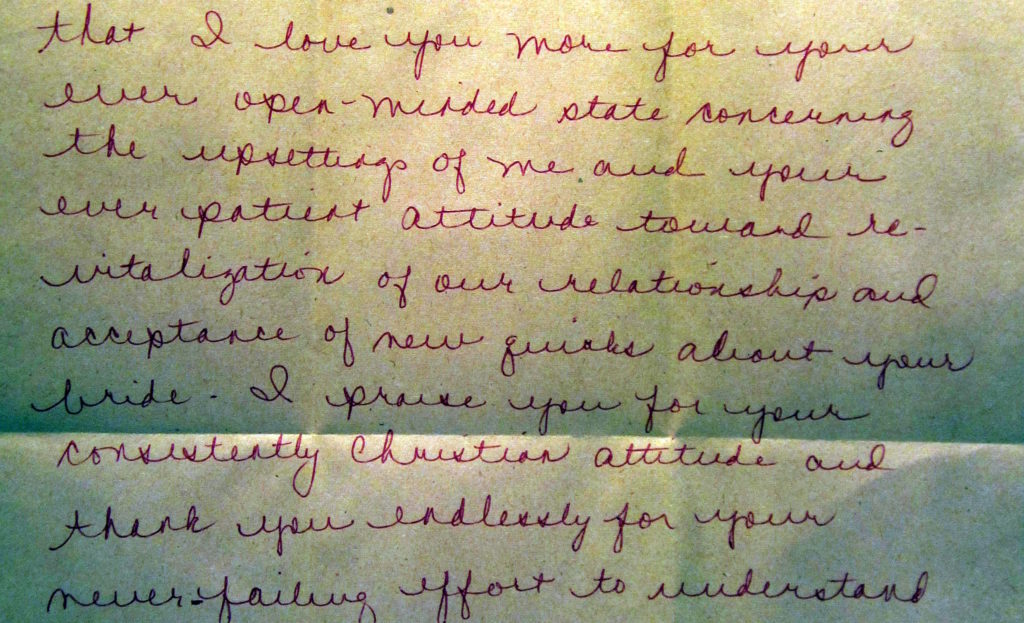 that I love you more for your
ever open-minded state concerning
the upsettings of me and your
ever patient attitude toward re-
vitalization of our relationship and
acceptance of new quirks about your
bride. I praise you for your
consistently Christian attitude and
thank you endlessly for your
never-failing effort to understand